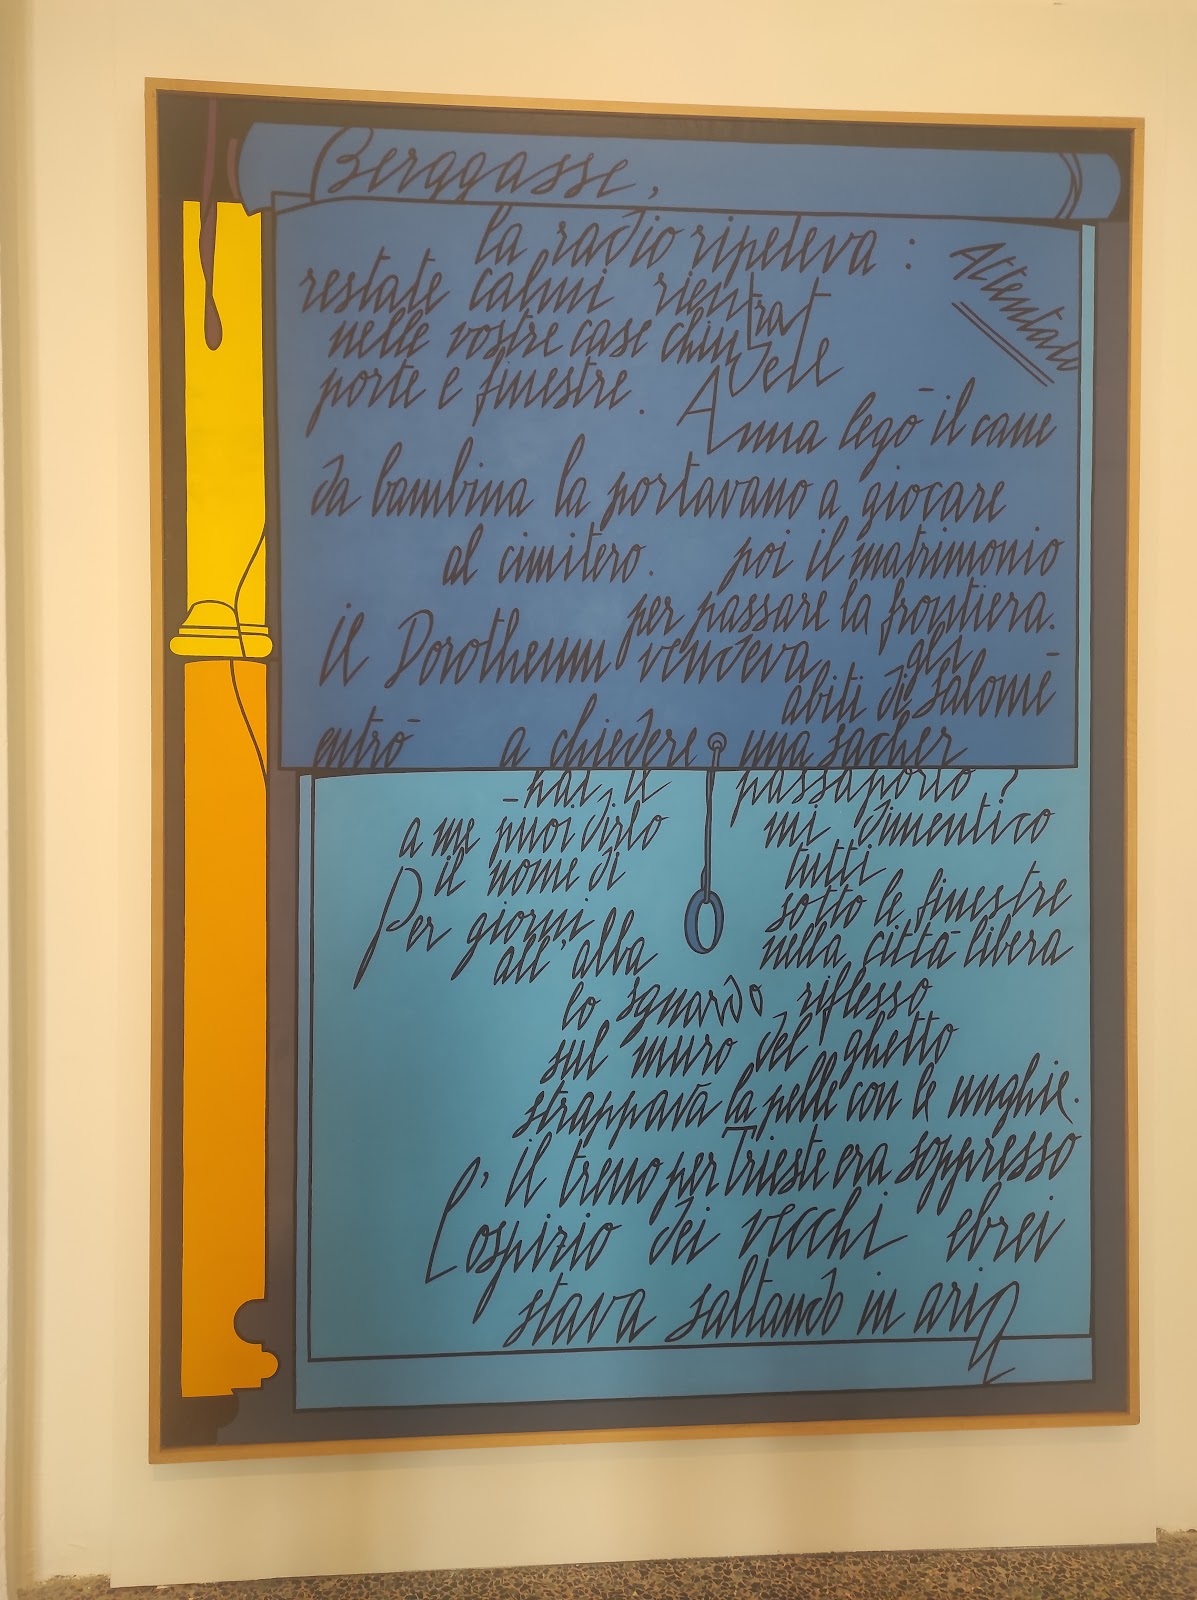 Berggasse,
la radio ripeteva :
Attentato
restate calmi rientrat
nelle vostre case chiudete
porte e finestre.
Anna legò il cane
da bambina la portavano a giocare
al cimitero. poi il matrimonio
per passare la frontiera.
il Dorotheum vendeva gli
abiti di Salomè
entrò a chiedere una sacher
- hai il passaporto ?
a me puoi dirlo mi dimentico
il nome di tutti
Per giorni sotto le finestre
all'alba nella città libera
lo sguardo riflesso
sul muro del ghetto
strappava la pelle con le unghie.
il treno per Trieste era soppresso
L'ospizio dei vecchi ebrei
stava saltando in aria